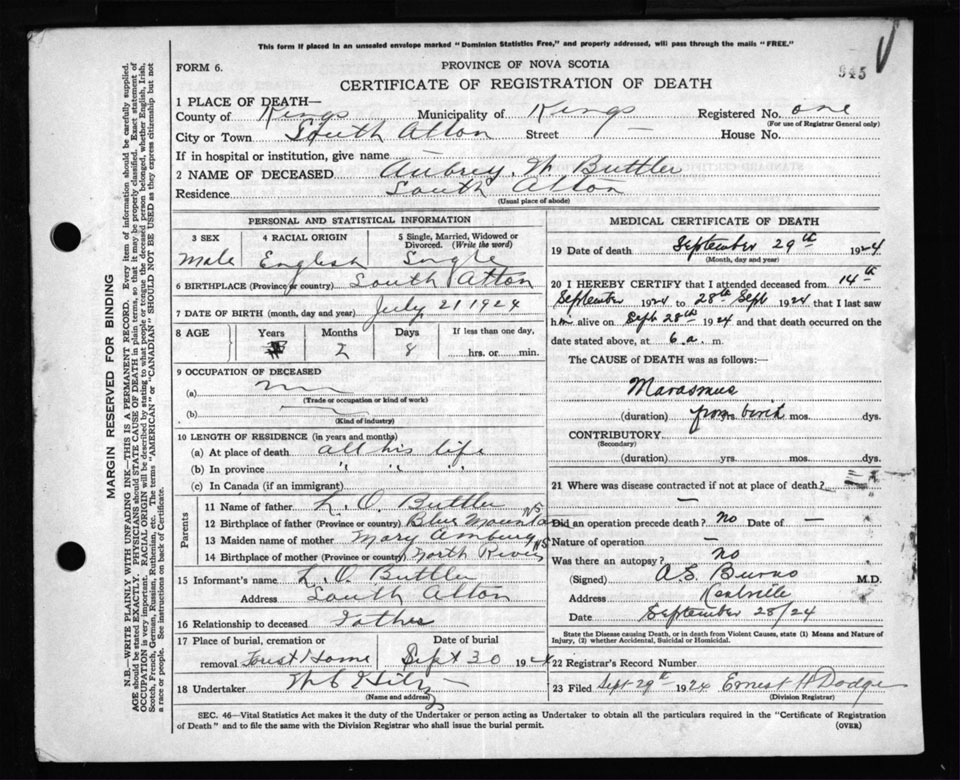 This form if placed in an unsealed envelope marked "Dominion Statistics Free," and properly addressed, will pass through the mails "FREE."
FORM 6.
PROVINCE OF NOVA SCOTIA
945
CERTIFICATE OF REGISTRATION OF DEATH
1 PLACE OF DEATH—
County of Kings Municipality of Kings Registered No. one
(For use of Registrar General only)
City or Town South Alton Street — House No.
If in hospital or institution, give name
2 NAME OF DECEASED Aubrey. W. Buttler
Residence South Alton
(Usual place of abode)
PERSONAL AND STATISTICAL INFORMATION
3 SEX 4 RACIAL ORIGIN 5 Single, Married, Widowed or Divorced. (Write the word)
Male English Single
6 BIRTHPLACE (Province or country) South Alton
7 DATE OF BIRTH (month, day and year) July 21 1924
8 AGE Years Months Days If less than one day,
2 8 hrs. or min.
9 OCCUPATION OF DECEASED
(a)
(Trade or occupation or kind of work)
(b)
(Kind of industry)
10 LENGTH OF RESIDENCE (in years and months)
(a) At place of death all his life
(b) In province " " "
(c) In Canada (if an immigrant)
Parents
11 Name of father L. O. Buttler
12 Birthplace of father (Province or country) Blue Mountain NS
13 Maiden name of mother Mary Amburg
14 Birthplace of mother (Province or country) North River NS
15 Informant's name L. O. Buttler
Address South Alton
16 Relationship to deceased Father
17 Place of burial, cremation or removal Forest Home Date of burial Sept 30 1924
18 Undertaker W C Hiltz —
(Name and address)
MEDICAL CERTIFICATE OF DEATH
19 Date of death September 29th 1924
(Month, day and year)
20 I HEREBY CERTIFY that I attended deceased from 14th
September 1924 to 28th Sept 1924 that I last saw
him alive on Sept 28th 1924 and that death occurred on the
date stated above, at 6 a. m.
The CAUSE of DEATH was as follows:
Marasmus
(duration) from birth mos. dys.
CONTRIBUTORY
(Secondary)
(duration) yrs. mos. dys.
21 Where was disease contracted if not at place of death?
—
Did an operation precede death? No Date of —
Nature of operation —
Was there an autopsy? No
(Signed) A.S. Burns M.D.
Address Kentville
Date September 28/24
State the Disease causing Death, or in death from Violent Causes, state (1) Means and Nature of
Injury, (2) whether Accidental, Suicidal or Homicidal.
22 Registrar's Record Number
23 Filed Sept 29th 1924 Ernest H Dodge
(Division Registrar)
SEC. 46—Vital Statistics Act makes it the duty of the Undertaker or person acting as Undertaker to obtain all the particulars required in the "Certificate of Registration
of Death" and to file the same with the Division Registrar who shall issue the burial permit. (OVER)
MARGIN RESERVED FOR BINDING
N.B.—WRITE PLAINLY WITH UNFADING INK—THIS IS A PERMANENT RECORD. Every item of information should be carefully supplied.
AGE should be stated EXACTLY. PHYSICIANS should STATE CAUSE OF DEATH in plain terms, so that it may be properly classified. Exact statement of
OCCUPATION is very important. RACIAL ORIGIN will be described by stating to what people or tongue the deceased person belonged, whether English, Irish,
Scotch, French, German, Russian, Ruthenian, etc. The terms "AMERICAN" or "CANADIAN" SHOULD NOT BE USED as they express citizenship but not
a race or people. See instructions on back of Certificate.